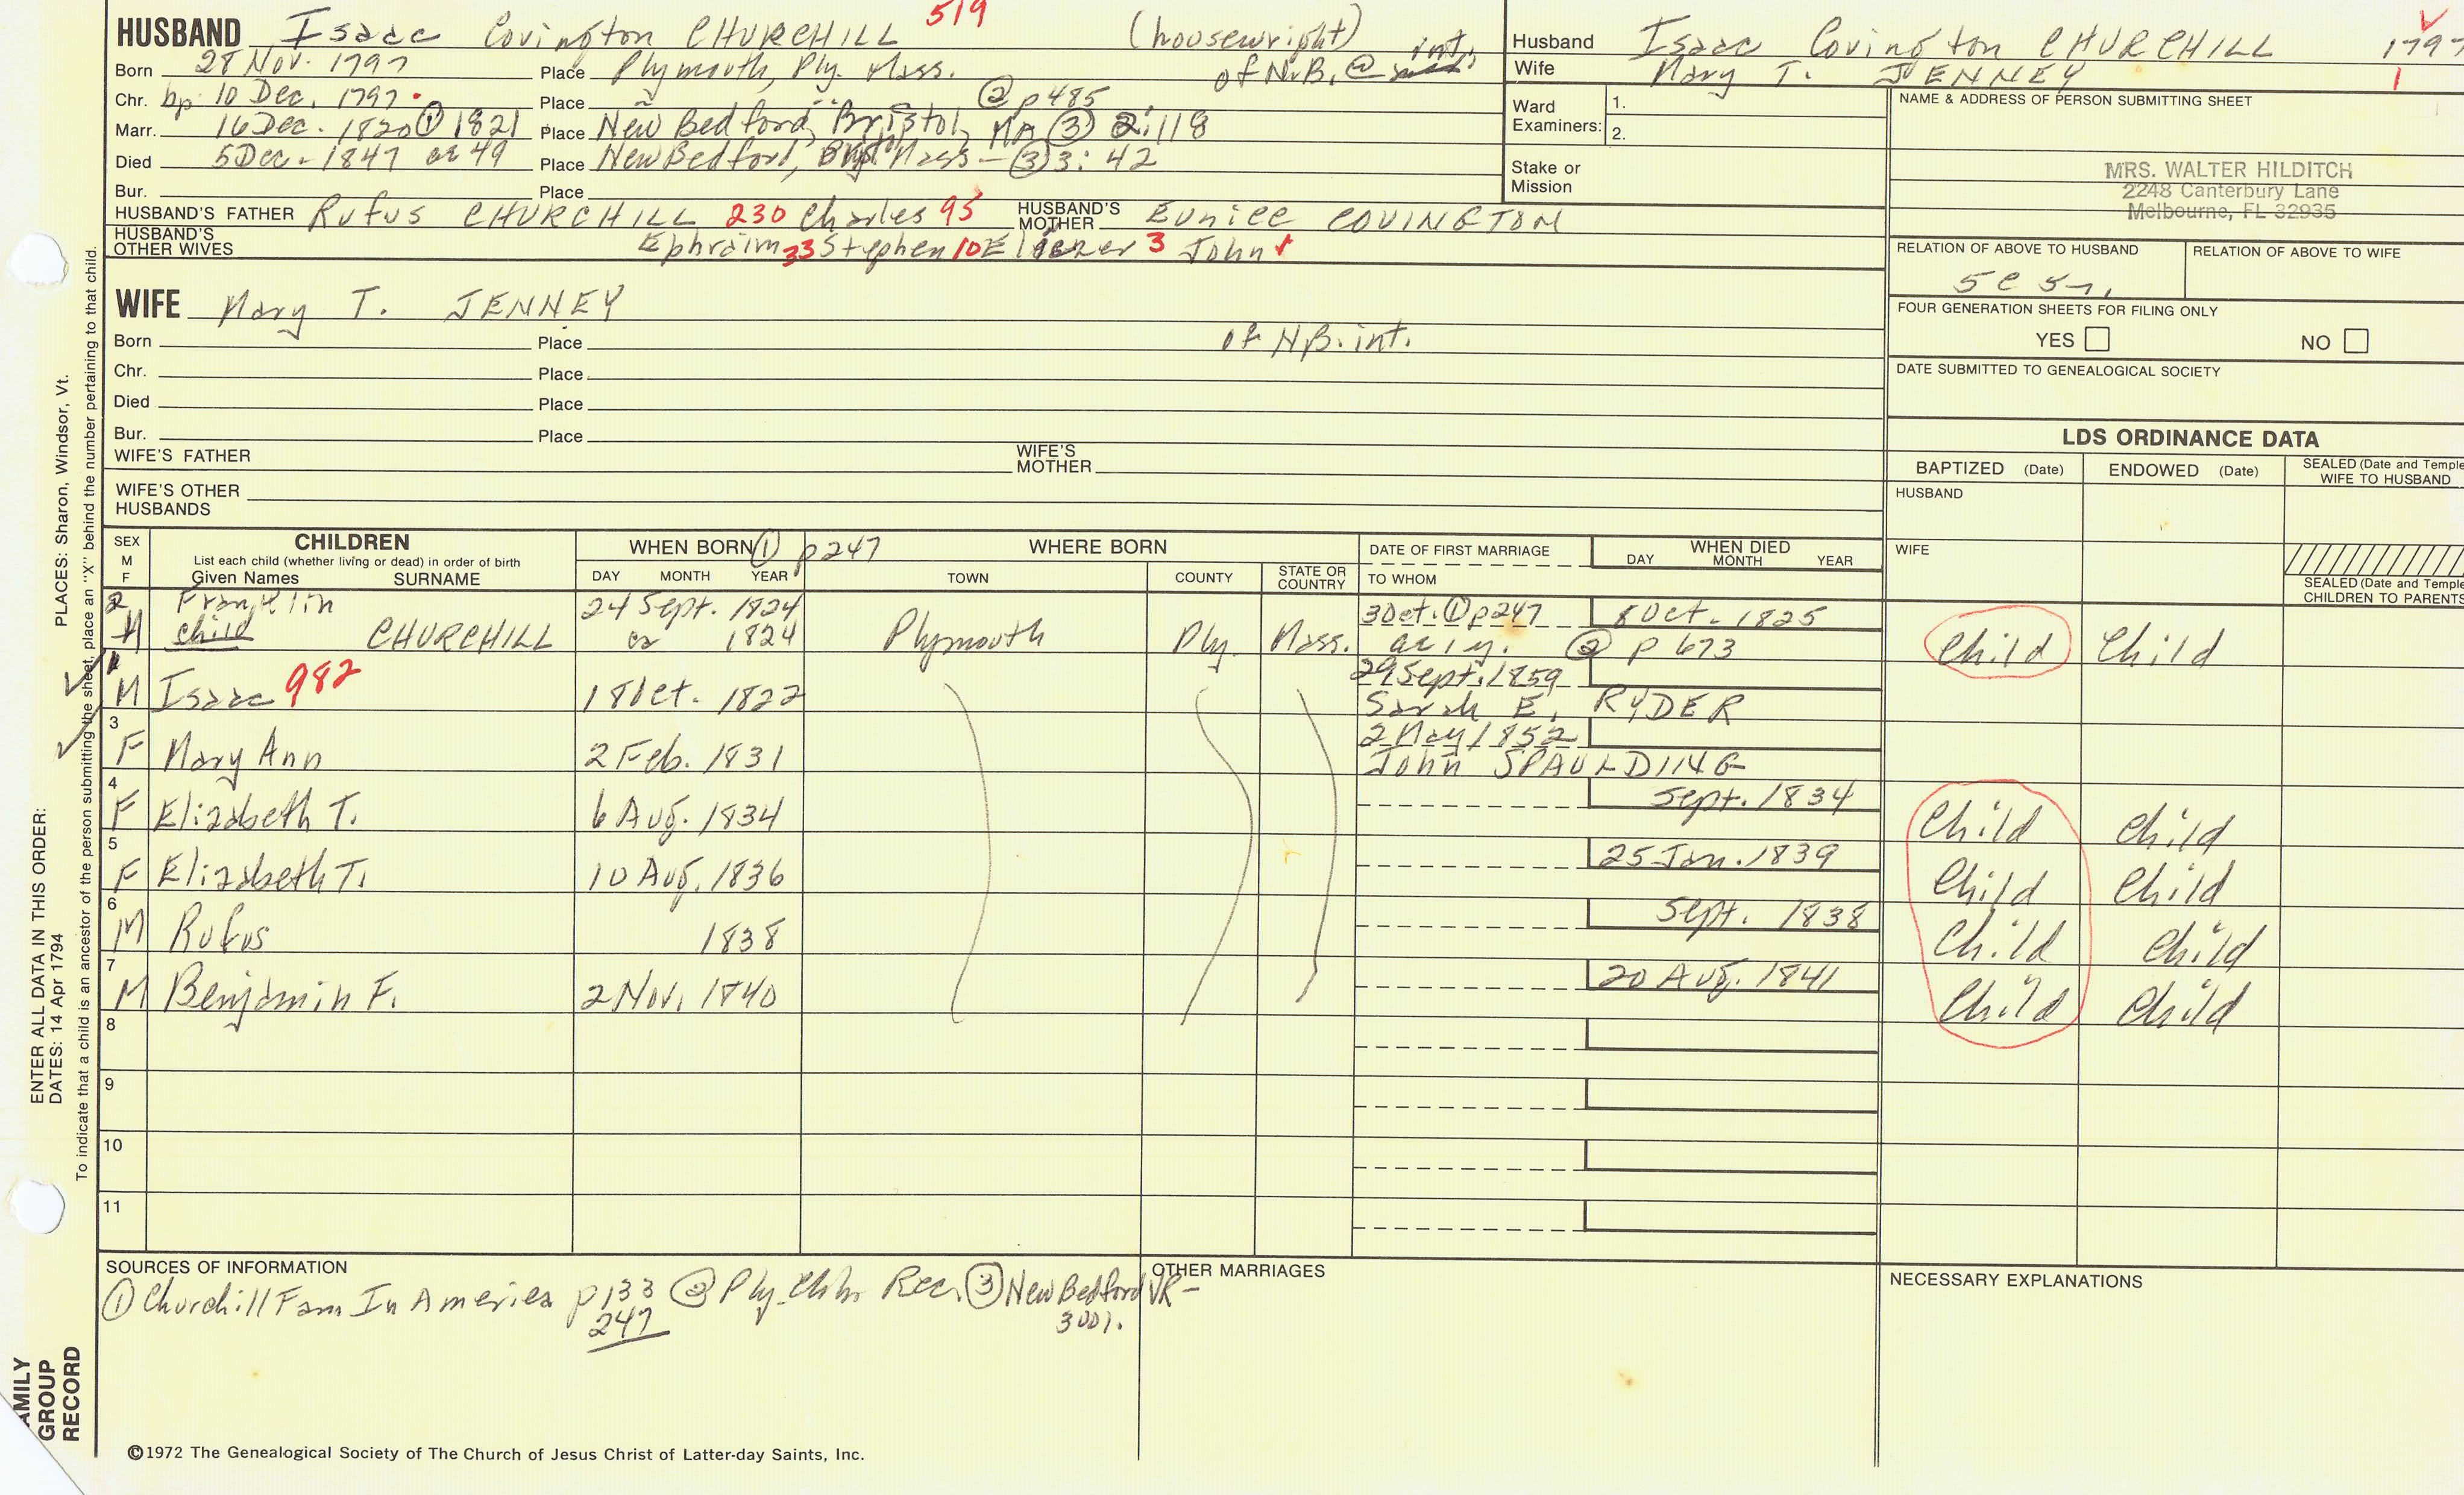 HUSBAND Isaac Covington CHURCHILL 519 (housewright)
Born 28 Nov. 1797 Place Plymouth, Ply. Mass. of N.B. @ int.
Chr. bp 10 Dec. 1797 Place ② p485
Marr. 16 Dec. 1820 ① 1821 Place New Bedford, Bristol, MA ③ 2:118
Died 5 Dec. 1847 or 49 Place New Bedford, Mass - ③ 3: 42
Bur. Place
HUSBAND'S FATHER Rufus CHURCHILL 230 Charles 95 HUSBAND'S MOTHER Eunice COVINGTON
HUSBAND'S OTHER WIVES Ephraim 33 Stephen 10 Eliezer 3 John 1
WIFE Mary T. JENNEY
Born Place of N.B. int.
Chr. Place
Died Place
Bur. Place
WIFE'S FATHER WIFE'S MOTHER
WIFE'S OTHER HUSBANDS
Husband Isaac Covington CHURCHILL 1797
Wife Mary T. JENNEY 1
Ward Examiners: 1.
2.
Stake or Mission
NAME & ADDRESS OF PERSON SUBMITTING SHEET
MRS. WALTER HILDITCH
2248 Canterbury Lane
Melbourne, FL 32935
RELATION OF ABOVE TO HUSBAND RELATION OF ABOVE TO WIFE
FOUR GENERATION SHEETS FOR FILING ONLY
YES NO
DATE SUBMITTED TO GENEALOGICAL SOCIETY
LDS ORDINANCE DATA
BAPTIZED (Date) ENDOWED (Date) SEALED (Date and Temple WIFE TO HUSBAND
HUSBAND
WIFE
SEALED (Date and Temple CHILDREN TO PARENTS
SEX M F CHILDREN WHEN BORN ① p247 WHERE BORN DATE OF FIRST MARRIAGE WHEN DIED
List each child (whether living or dead) in order of birth
Given Names SURNAME DAY MONTH YEAR TOWN COUNTY STATE OR COUNTRY TO WHOM DAY MONTH YEAR
2 Franklin 24 Sept. 1824 3 Oct. ① p247 8 Oct. 1825
M child CHURCHILL or 1824 Plymouth Ply. Mass. ae 1 y. ② p 673 Child Child
1 29 Sept. 1859
M Isaac 982 18 Oct. 1822 Sarah E. RYDER
3 2 May 1852
F Mary Ann 2 Feb. 1831 John SPAULDING
4 Sept. 1834
F Elizabeth T. 6 Aug. 1834 Child Child
5 25 Jan. 1839
F Elizabeth T. 10 Aug. 1836 Child Child
6 Sept. 1838
M Rufus 1838 Child Child
7 20 Aug. 1841
M Benjamin F. 2 Nov. 1840 Child Child
8
9
10
11
SOURCES OF INFORMATION
① Churchill Fam In America p133 ② Ply. Chh. Rec. ③ New Bedford VR -
247
OTHER MARRIAGES
NECESSARY EXPLANATIONS
©1972 The Genealogical Society of The Church of Jesus Christ of Latter-day Saints, Inc.
PLACES: Sharon, Windsor, Vt.
ENTER ALL DATA IN THIS ORDER:
DATES: 14 Apr 1794
To indicate that a child is an ancestor of the person submitting the sheet, place an "X" behind the number pertaining to that child.
AMILY
GROUP
RECORD